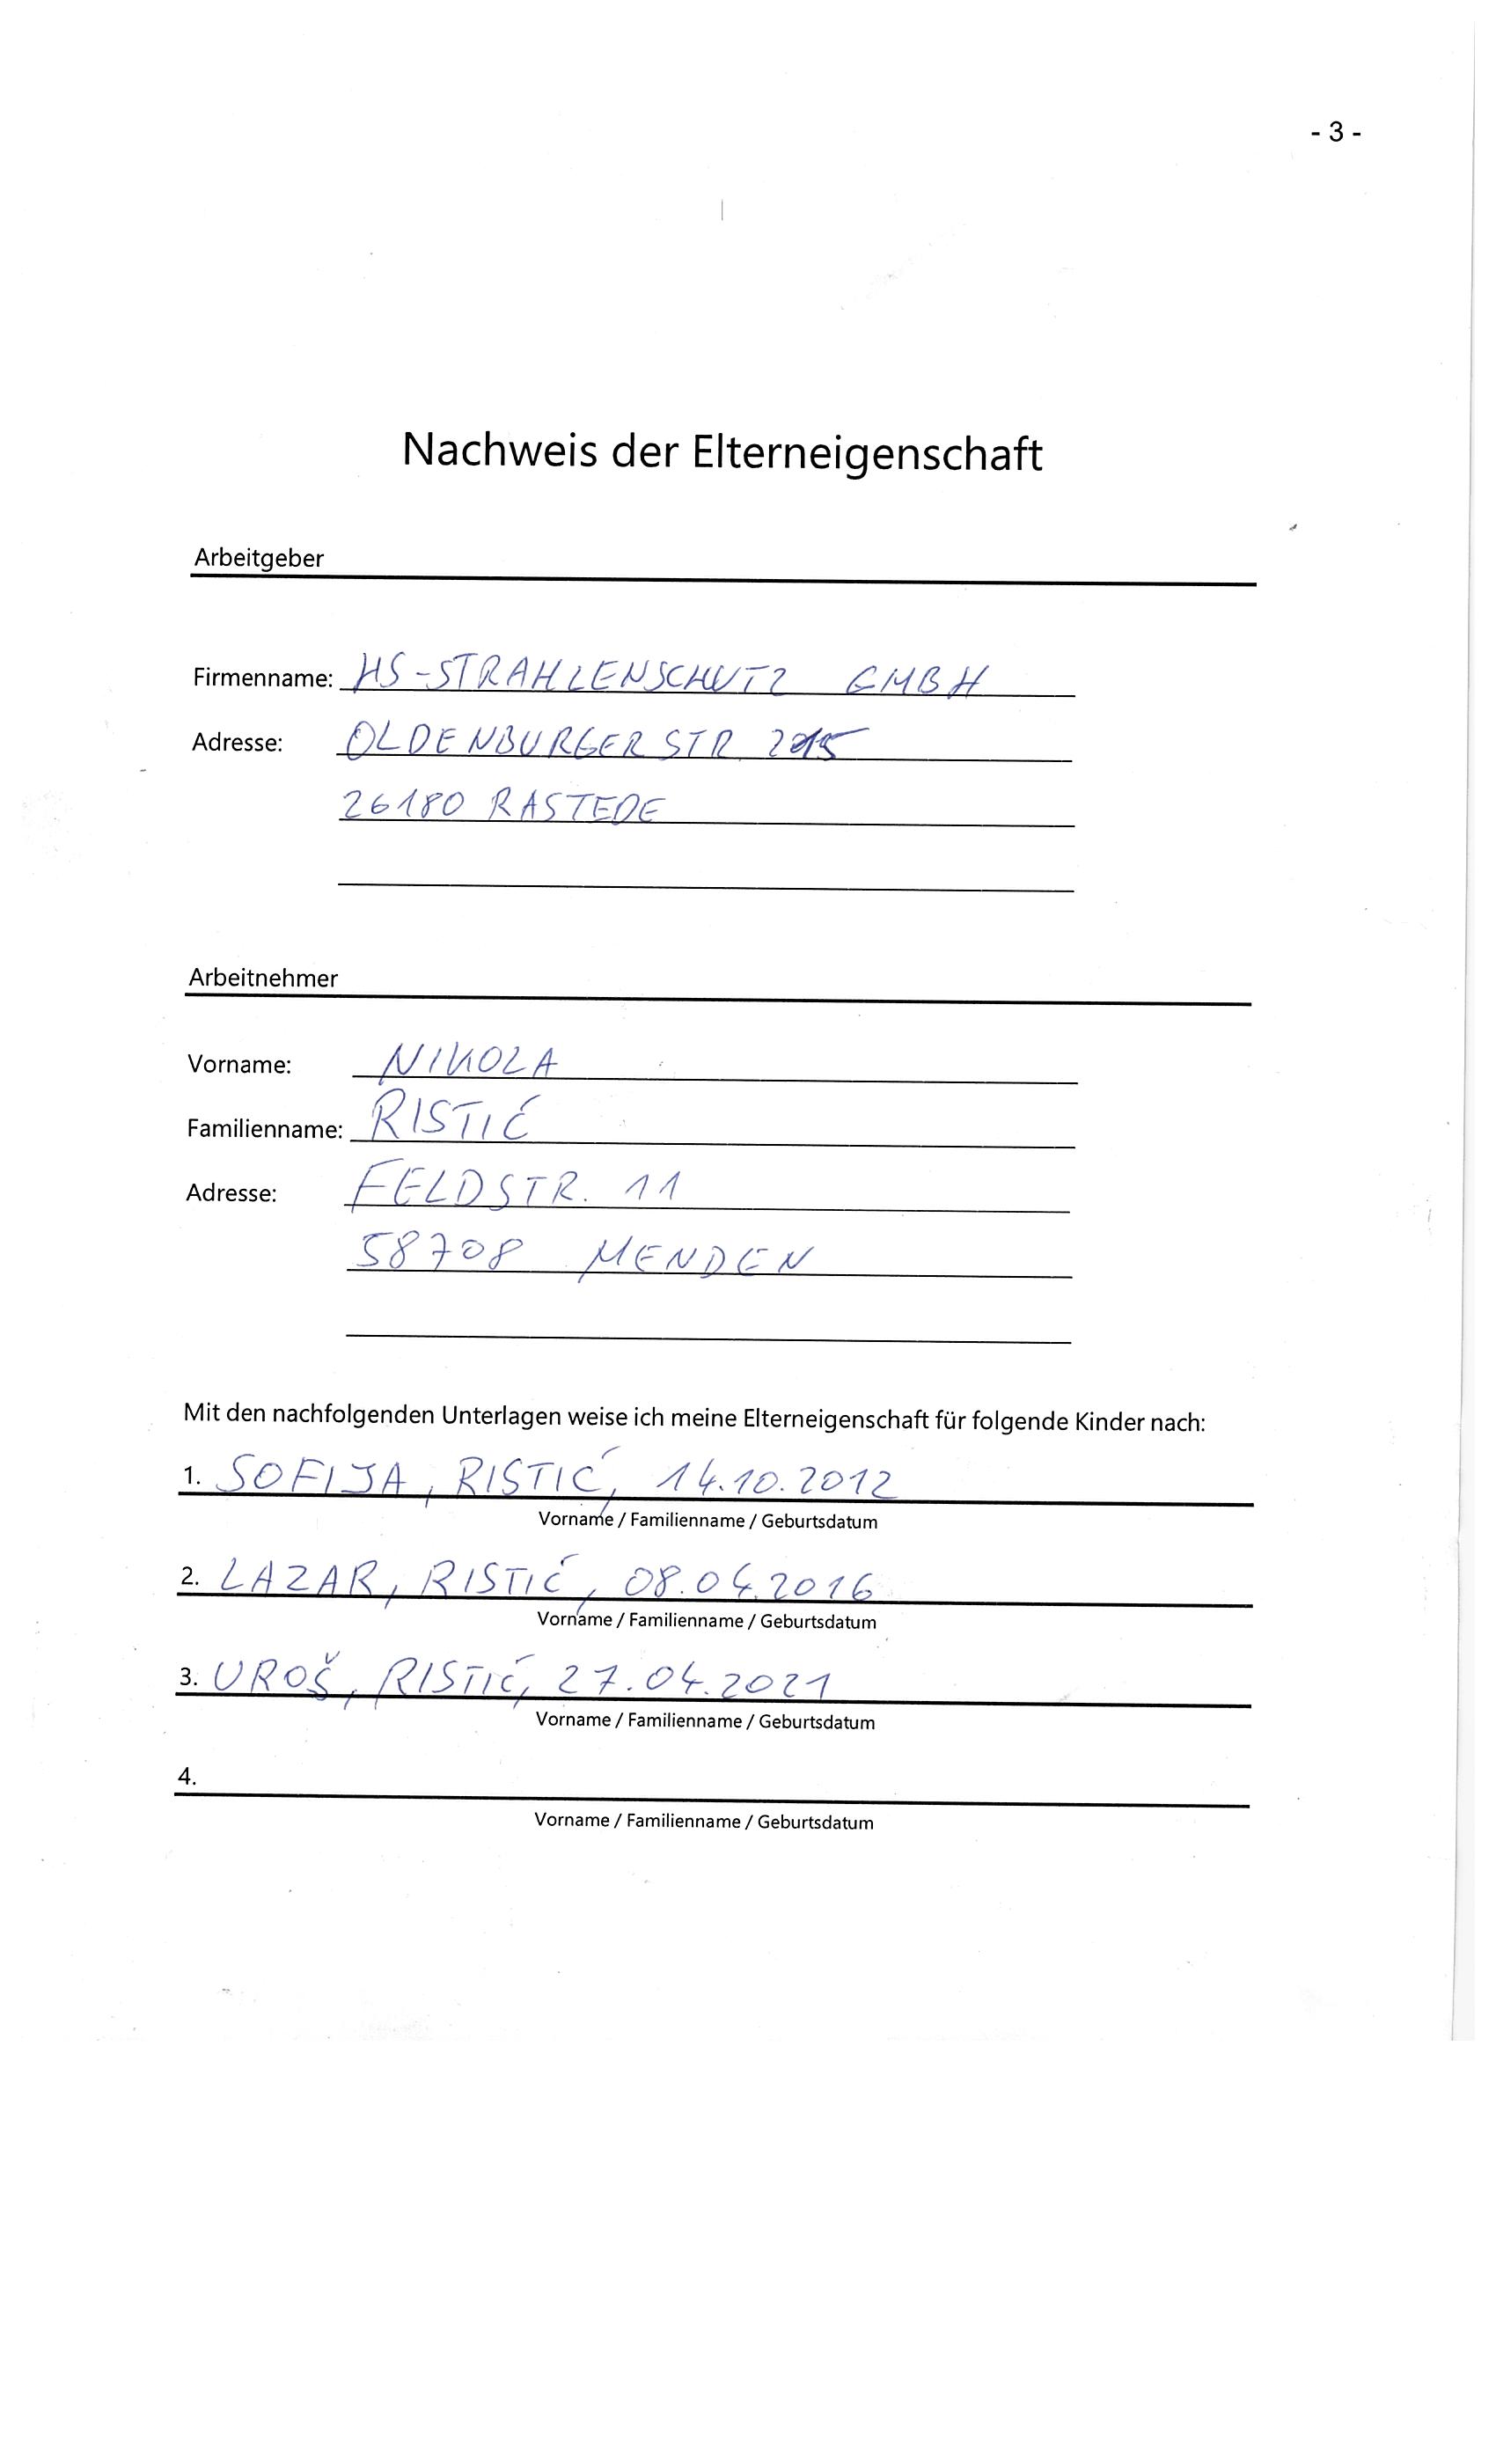 - 3 -
Nachweis der Elterneigenschaft
Arbeitgeber
Firmenname: HS-STRAHLENSCHUTZ GMBH
Adresse: OLDENBURGER STR
26180 RASTEDE
Arbeitnehmer
Vorname: NIKOLA
Familienname: RISTIĆ
Adresse: FELDSTR. 11
58708 MENDEN
Mit den nachfolgenden Unterlagen weise ich meine Elterneigenschaft für folgende Kinder nach:
1. SOFIJA, RISTIĆ, 14.10.2012
Vorname / Familienname / Geburtsdatum
2. LAZAR, RISTIĆ, 08.04.2016
Vorname / Familienname / Geburtsdatum
3. UROŠ, RISTIĆ, 27.04.2021
Vorname / Familienname / Geburtsdatum
4.
Vorname / Familienname / Geburtsdatum